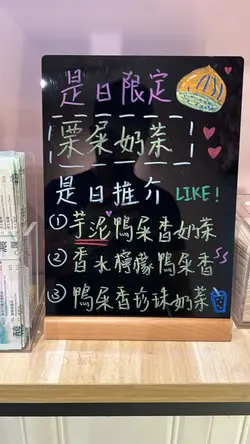 是日限定
栗屎奶茶
是日推介 LIKE!
① 芋泥鴨屎香奶茶
② 香水檸檬鴨屎香
③ 鴨屎香珍珠奶茶